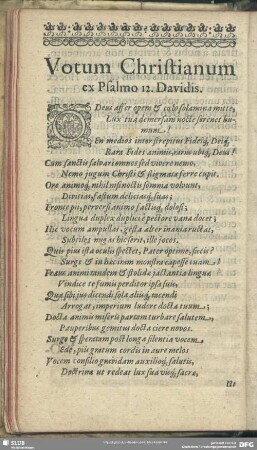 Votum Christianum
ex Psalmo 12. Davidis.
O Deus affer opem & cælo solamina mitte,
Lux tua demersam nocte serenet humum.
En medios inter strepitus Fideiq́;
Rara Fides animis, rarus ubiq́;, Deus!
Cum sanctis salvari omnes sed vivere nemo,
Nemo jugum Christi & stigmata ferre cupit.
Ore animoq́; nihil nisi noctis somnia volvunt,
Divitias, fastum delicias q́;, suas;
pii, perversi animo factisq́; dolosi;
Lingua duplex duplici è pectore vana docet;
Hic vocum ampullas, gesta alter inania ructat,
Subtiles nugas hic serit, ille jocos.
Quis pius ista oculis spectet, Pater optime, siccis?
Surge & in hæc suam!
Fran animi tandem & stolida jactantia lingua
Vindice te fumis perditor ipsa suis,
Quæ sibi jus dicendi sola aliisq́; tacendi
Arrogat, imperium ludere docta tuum;
Docta animis miseris partam turbare salutem,
Pauperibus gemitus docta ciere novos.
Surge & speratam post longa silentia vocem
Ede, piis gratum cordis in aure melos
Vocem consilio gravidam auxilioq́;, salutis,
Doctrinæ ut redeat lux sua viuq́;, sacræ,
Ut
SLUB
DFG